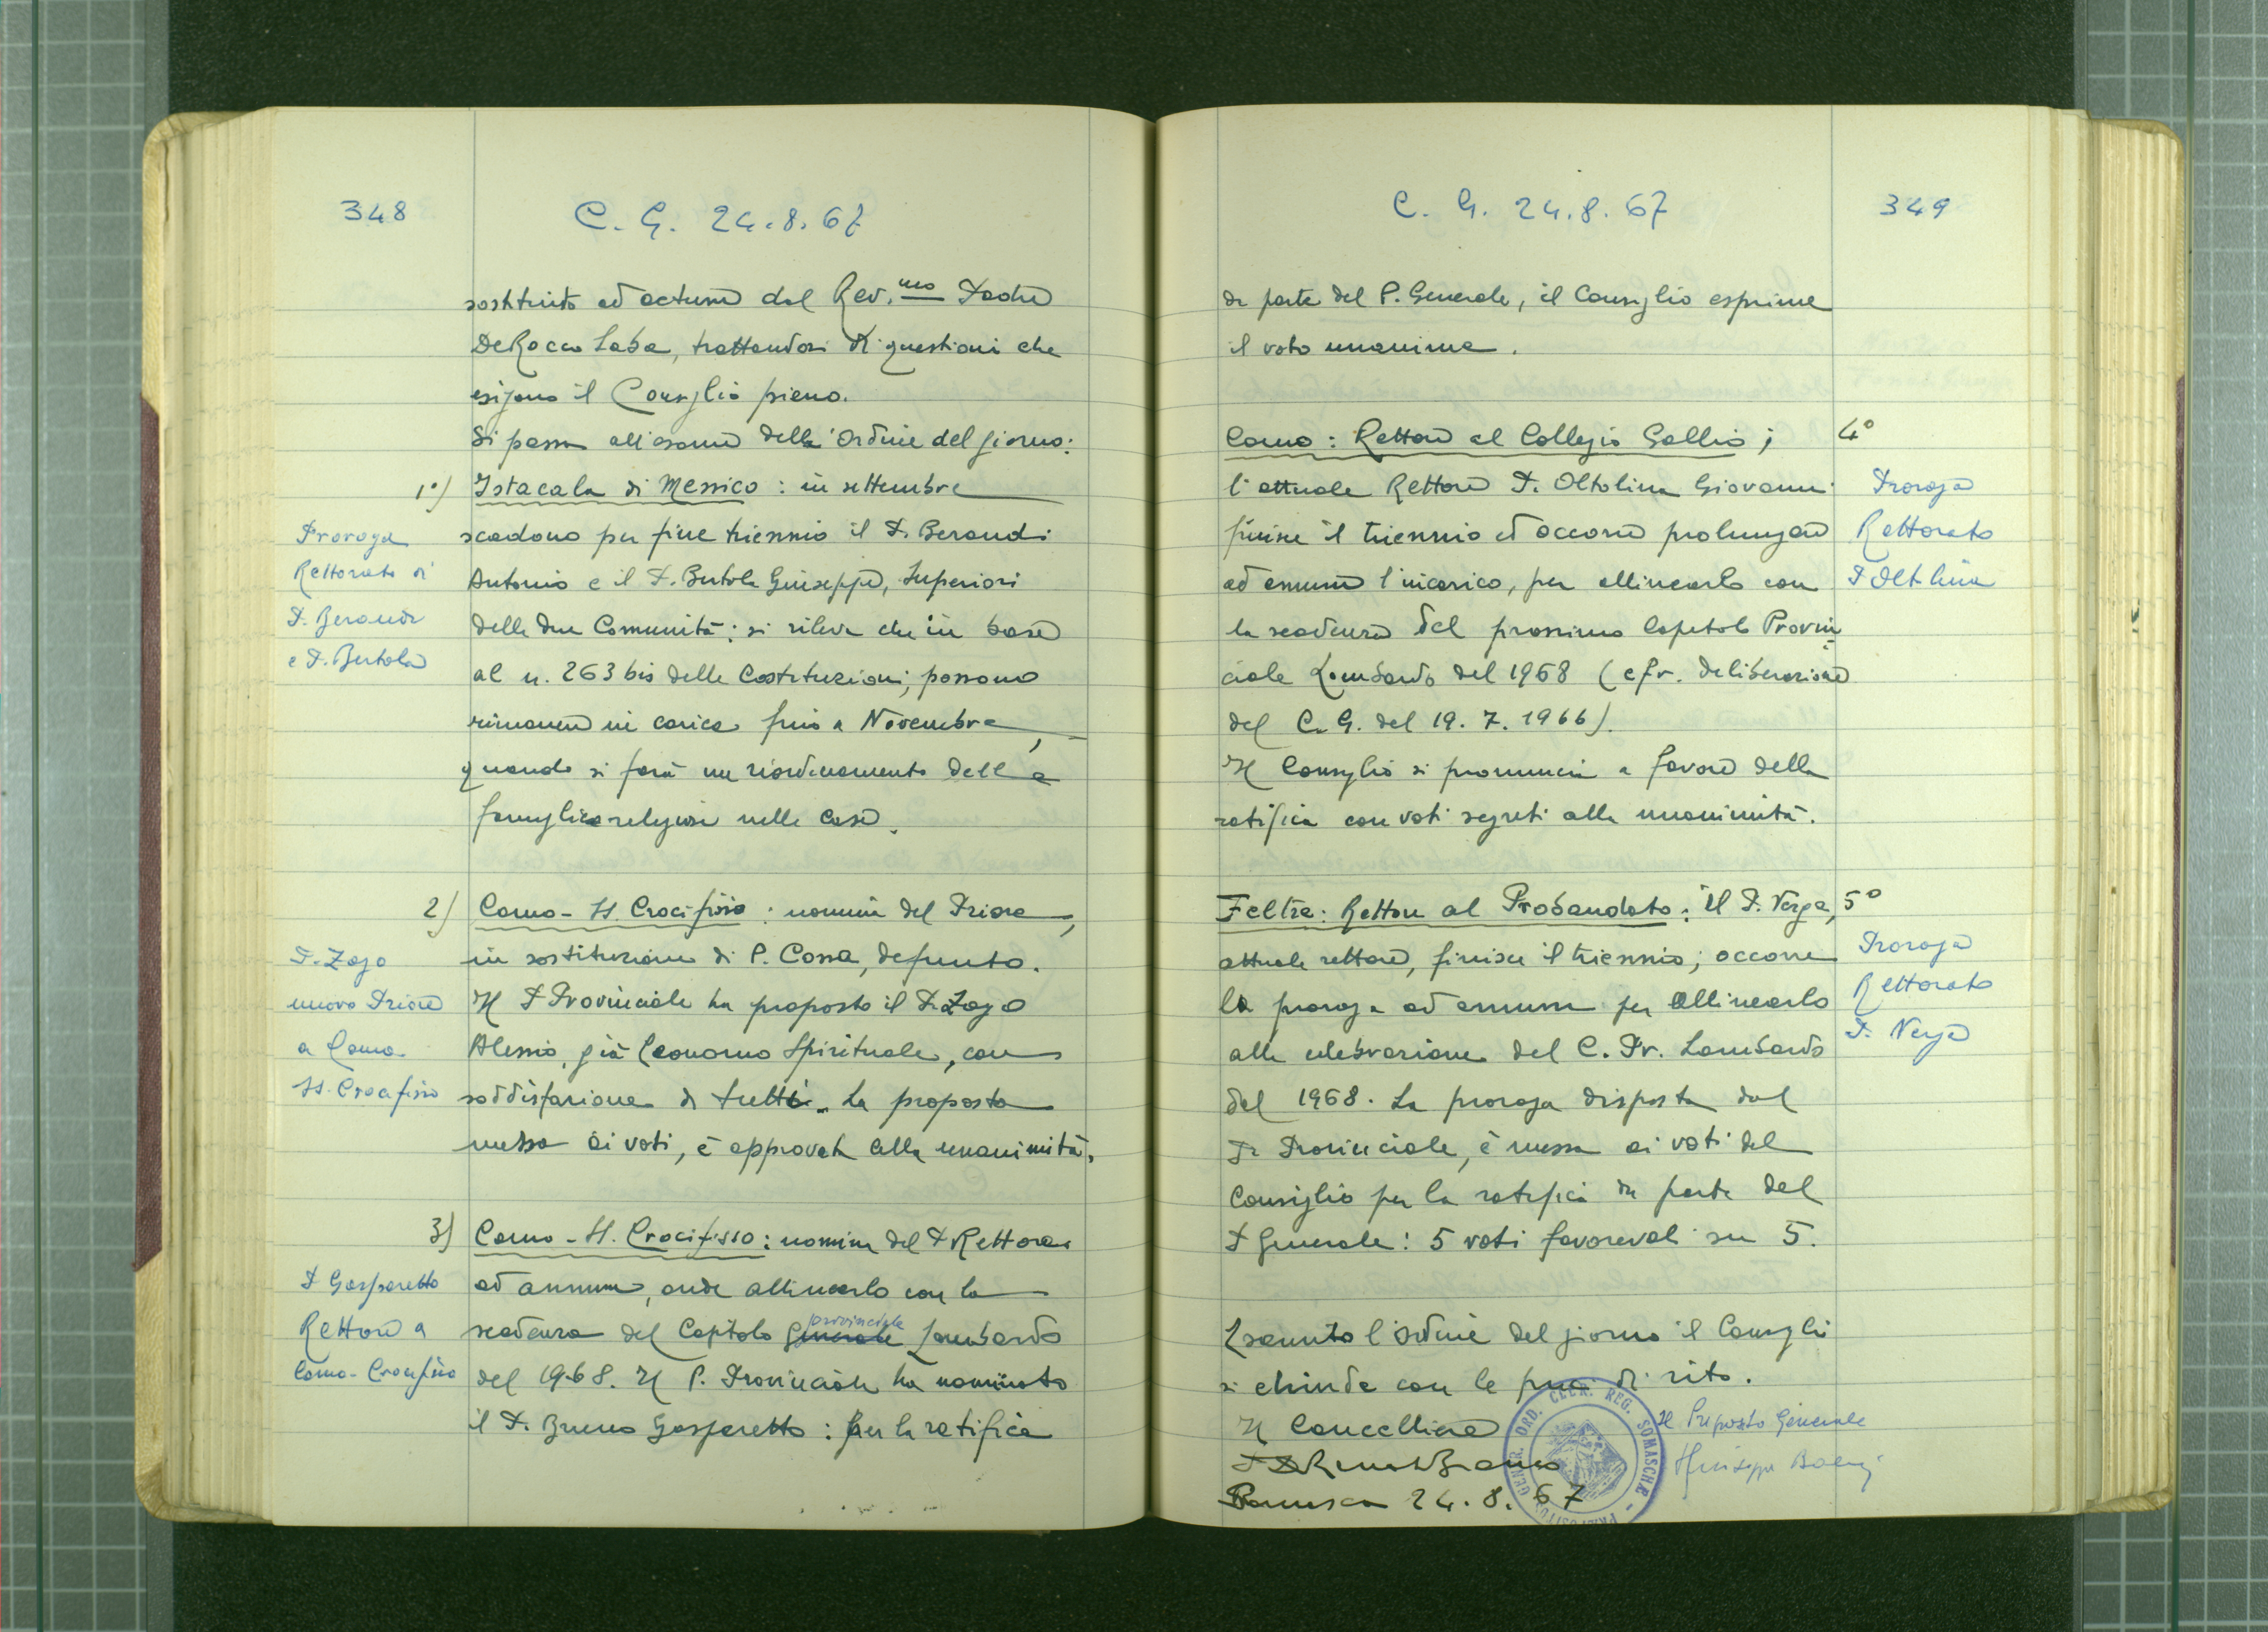 348
C. G. 24.8.67
sostituito ad actum dal Rev.mo Padre
De Rocco Saba, trattandosi di questioni che
esigono il Consiglio pieno.
Si passa all'esame dell'Ordine del giorno:
1°) Istacala di Messico: in settembre
scadono per fine triennio il P. Beraudi
Antonio e il P. Bertola Giuseppe, Superiori
delle due Comunità; si rileva che in base
al n. 263 bis delle Costituzioni, possono
rimanere in carica fino a Novembre,
quando si farà un riordinamento delle
famiglie religiose nelle Case.
Proroga
Rettorato di
P. Beraudi
e P. Bertola
2) Como - SS. Crocifisso: nomina del Priore,
in sostituzione di P. Cossa, defunto.
Il P. Provinciale ha proposto il P. Zago
Alessio, già Economo Spirituale, con
soddisfazione di tutti. La proposta
messa ai voti, è approvata alla unanimità.
P. Zago
nuovo Priore
a Como
SS. Crocifisso
3) Como - SS. Crocifisso: nomina del P. Rettore
ad annum, onde allinearlo con la
scadenza del Capitolo Generale provinciale Lombardo
del 1968. Il P. Provinciale ha nominato
il P. Bruno Gasparetto: per la ratifica
P. Gasparetto
Rettore a
Como - Crocifisso
C. G. 24.8.67
349
da parte del P. Generale, il Consiglio esprime
il voto unanime.
Como: Rettore al Collegio Gallio; 4°
l'attuale Rettore P. Oltolina Giovanni
finisce il triennio ed occorre prolungare
ad annum l'incarico, per allinearlo con
la scadenza del prossimo Capitolo Provin
ciale Lombardo del 1968 (cfr. deliberazione
del C. G. del 19. 7. 1966).
Il Consiglio si pronuncia a favore della
ratifica con voti segreti alla unanimità.
Proroga
Rettorato
P. Oltolina
Feltre: Rettore al Probandato: il P. Verga, 5°
attuale rettore, finisce il triennio; occorre
la proroga ad annum per allinearlo
alla celebrazione del C. Pr. Lombardo
del 1968. La proroga disposta dal
P. Provinciale, è messa ai voti del
Consiglio per la ratifica da parte del
P. Generale: 5 voti favorevoli su 5.
Proroga
Rettorato
P. Verga
Esaurito l'ordine del giorno il Consiglio
si chiude con le preci di rito.
Il Cancelliere
Il Preposto Generale
24.8.67
GENER. ORD. CLER. REG. SOMASCHAE